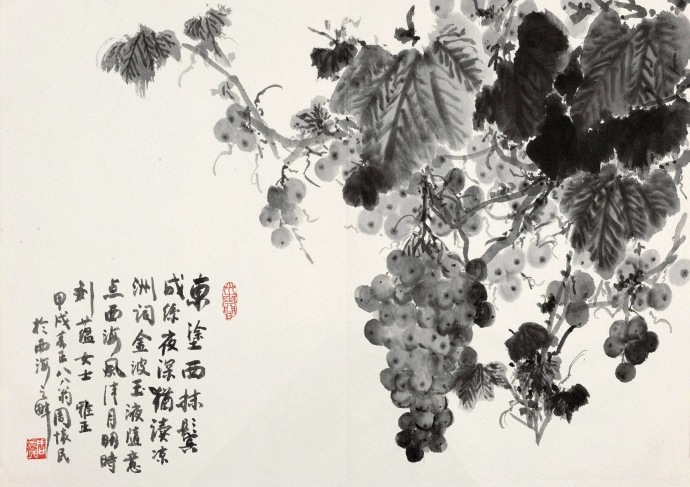 東塗西抹鬓
成絲夜深猶讀凉
洲词金波玉液随意
点西海风清月明時
剑蕴女士雅正
甲戌春正八八翁周懷民
於西海之畔